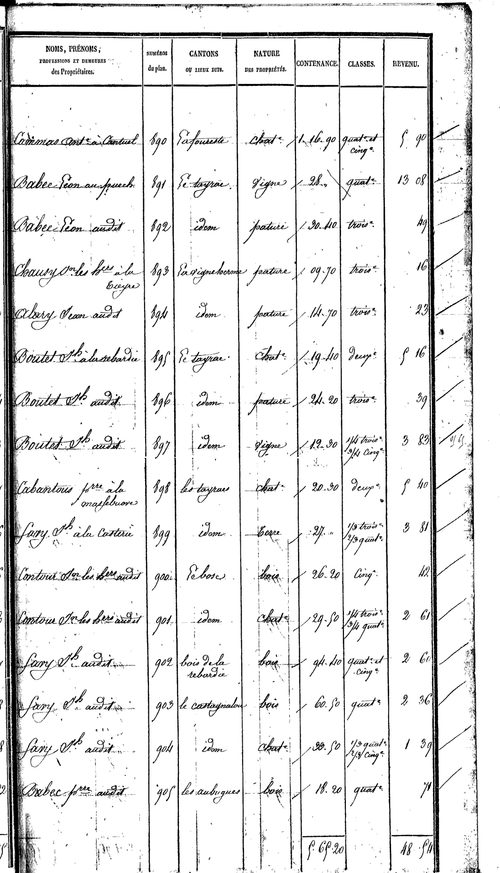 NOMS, PRÉNOMS, PROFESSIONS ET DEMEURES des Propriétaires. NUMÉROS du plan. CANTONS OU LIEUX DITS. NATURE DES PROPRIÉTÉS. CONTENANCE. CLASSES. REVENU.
Cammas ant.e à Cantuel 890 La foureste chat.e 1. 16. 90 quat.e et cinq.e 5 90
Babec Léon au puech 891 Le tayrac vigne 28. „ quat.e 13 08
Babec Léon audit 892 idem pature 30. 40 trois.e 49
Chausy les h.res à la 893 La vigne pature 09. 70 trois.e 16
Jean audit 894 idem pature 14. 70 trois.e 23
Boutet J.ph à la rebardie 895 Le tayrac chat.e 19. 40 deux.e 5 16
Boutet J.ph audit 896 idem pature 24. 20 trois.e 39
Boutet J.ph audit 897 idem vigne 12. 30 1/4 trois.e 3/4 cinq.e 3 83
Cabantous p.rre à la 898 les tayracs chat.e 20. 30 deux.e 5 40
J.ph à la Casterie 899 idem terre 27. „ 1/3 trois.e 2/3 quat.e 3 81
les h.res audit 900 Le bosc bois 26. 20 cinq.e 42
les h.res audit 901 idem chat.e 29. 50 1/4 trois.e 3/4 quat.e 2 61
J.ph audit 902 bois de la rebardie bois 94. 40 quat.e et cinq.e 2 60
J.ph audit 903 le castagnalou bois 60. 50 quat.e 2 36
J.ph audit 904 idem chat.e 33. 50 1/3 quat.e 2/3 cinq.e 1 39
Babec p.rre audit 905 les aubugues bois 18. 20 quat.e 71
5. 65. 20 48 54